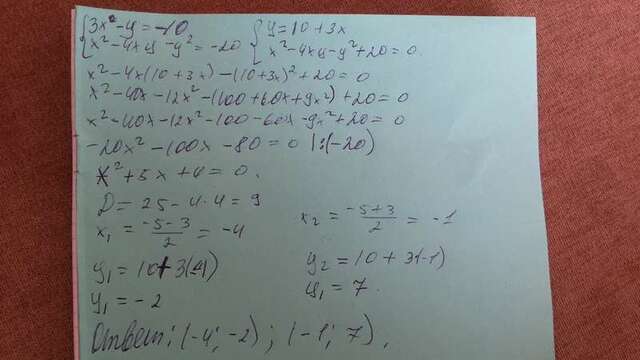 {3x - y = -10 {y = 10 + 3x
{x² - 4xy - y² = -20 {x² - 4xy - y² + 20 = 0.
x² - 4x(10 + 3x) - (10 + 3x)² + 20 = 0
x² - 40x - 12x² - (100 + 60x + 9x²) + 20 = 0
x² - 40x - 12x² - 100 - 60x - 9x² + 20 = 0
-20x² - 100x - 80 = 0 |:(-20)
x² + 5x + 4 = 0.
D = 25 - 4·4 = 9
x₁ = (-5-3)/2 = -4 x₂ = (-5+3)/2 = -1
y₁ = 10 + 3(-4) y₂ = 10 + 3(-1)
y₁ = -2 y₁ = 7.
Ответ: (-4; -2); (-1; 7).